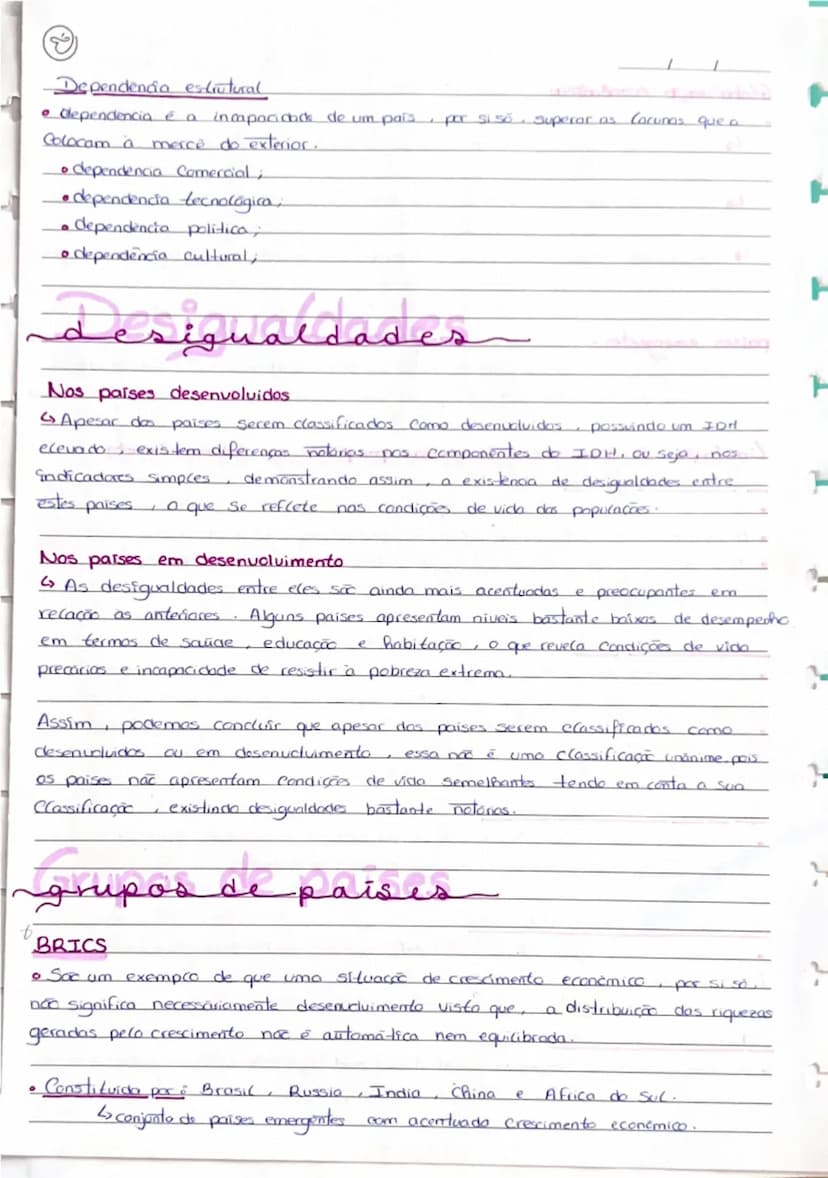 Dependencia estrutural
• dependencia é a incapacidade de um país, por si só, superar as lacunas que o
colocam à mercê do exterior.
• dependencia comercial;
• dependencia tecnológica;
• dependência política;
• dependência cultural;
Desigualdades
desigualdades
Nos países desenvolvidos
↳ Apesar dos paises serem classificados como desenvolvidos, possuindo um IDH
elevado, existem diferenças notórias nos componentes do IDH, ou seja, nos
indicadores simples, demonstrando assim, a existência de desigualdades entre
estes paises, o que se reflete nas condições de vida das populações.
Nos países em desenvolvimento
↳ As desigualdades entre eles são ainda mais acentuadas e preocupantes em
relação as anteriores. Alguns paises apresentam niveis bastante baixos de desempenho
em termos de saúde, educação e habitação, o que revela condições de vida
precárias e incapacidade de resistir à pobreza extrema.
Assim, podemos concluir que apesar dos paises serem classificados como
desenvolvidos ou em desenvolvimento, essa não é uma classificação unânime pois
os paises não apresentam condições de vida semelhantes tendo em conta a sua
classificação, existindo desigualdades bastante notórias.
Grupos de países
grupos de países
BRICS
• São um exemplo de que uma situação de crescimento económico, por si só,
não significa necessáriamente desenvolvimento visto que, a distribuição das riquezas
geradas pelo crescimento não é automática nem equilibrada.
• Constituido por: Brasil, Russia, India, China e Africa do Sul.
↳ conjunto de paises emergentes com acentuado crescimento económico.